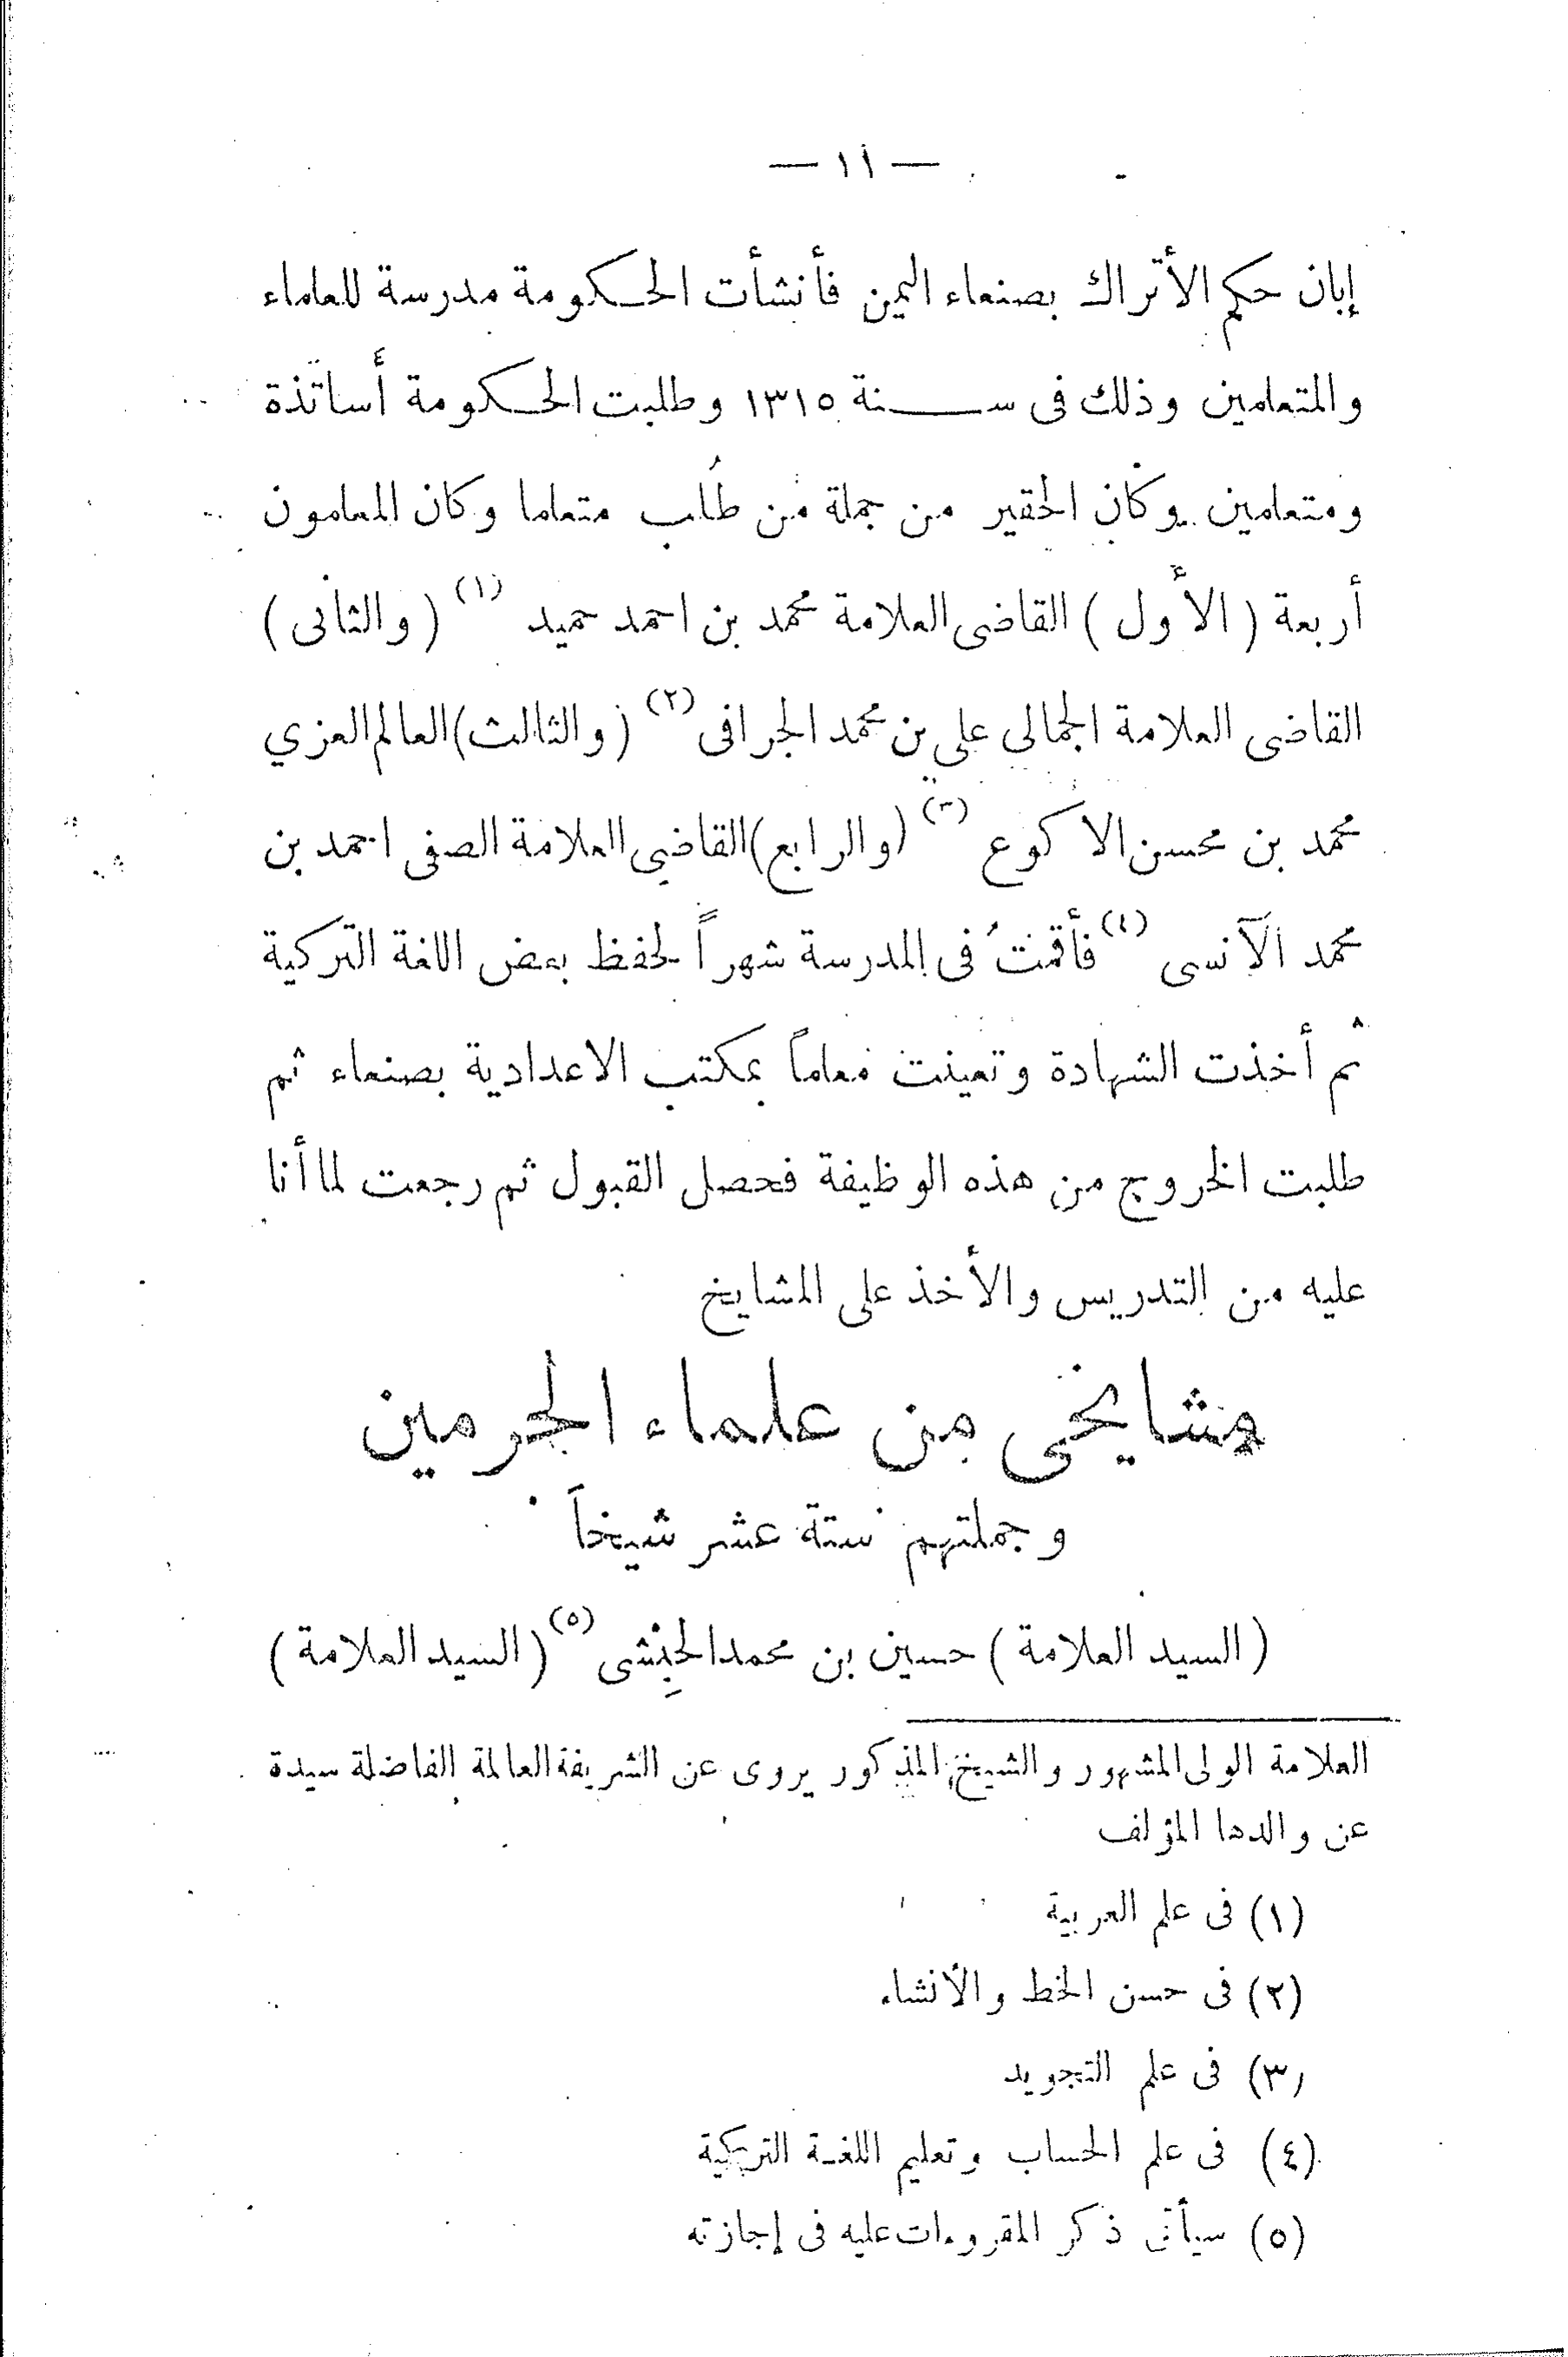 — ١١ —
إبان حكم الأتراك بصنعاء اليمن فأنشأت الحكومة مدرسة للعلماء
والمتعلمين وذلك فى سنة ١٣١٥ وطلبت الحكومة أساتذة
ومتعلمين وكان الحقير من جملة من طُلب متعلما وكان المعلمون
أربعة ( الأول ) القاضى العلامة محمد بن احمد حميد (١) ( والثانى )
القاضى العلامة الجمالى على بن محمد الجرافى (٢) ( والثالث ) العالم العزي
محمد بن محسن الاكوع (٣) ( والرابع ) القاضى العلامة الصفى احمد بن
محمد الآنسى (٤) فأقمتُ فى المدرسة شهراً لحفظ بعض اللغة التركية
ثم أخذت الشهادة وتعينت معلماً بمكتب الاعدادية بصنعاء ثم
طلبت الخروج من هذه الوظيفة فحصل القبول ثم رجعت لما أنا
عليه من التدريس والأخذ على المشايخ
مشايخى من علماء الحرمين
وجملتهم ستة عشر شيخاً
( السيد العلامة ) حسين بن محمد الحِبْشى (٥) ( السيد العلامة )
العلامة الولى المشهور والشيخ المذكور يروى عن الشريفة العالمة الفاضلة سيدة
عن والدها المؤلف
(١) فى علم العربية
(٢) فى حسن الخط والأنشاء
(٣) فى علم التجويد
(٤) فى علم الحساب وتعليم اللغة التركية
(٥) سيأتى ذكر المقروءات عليه فى إجازته